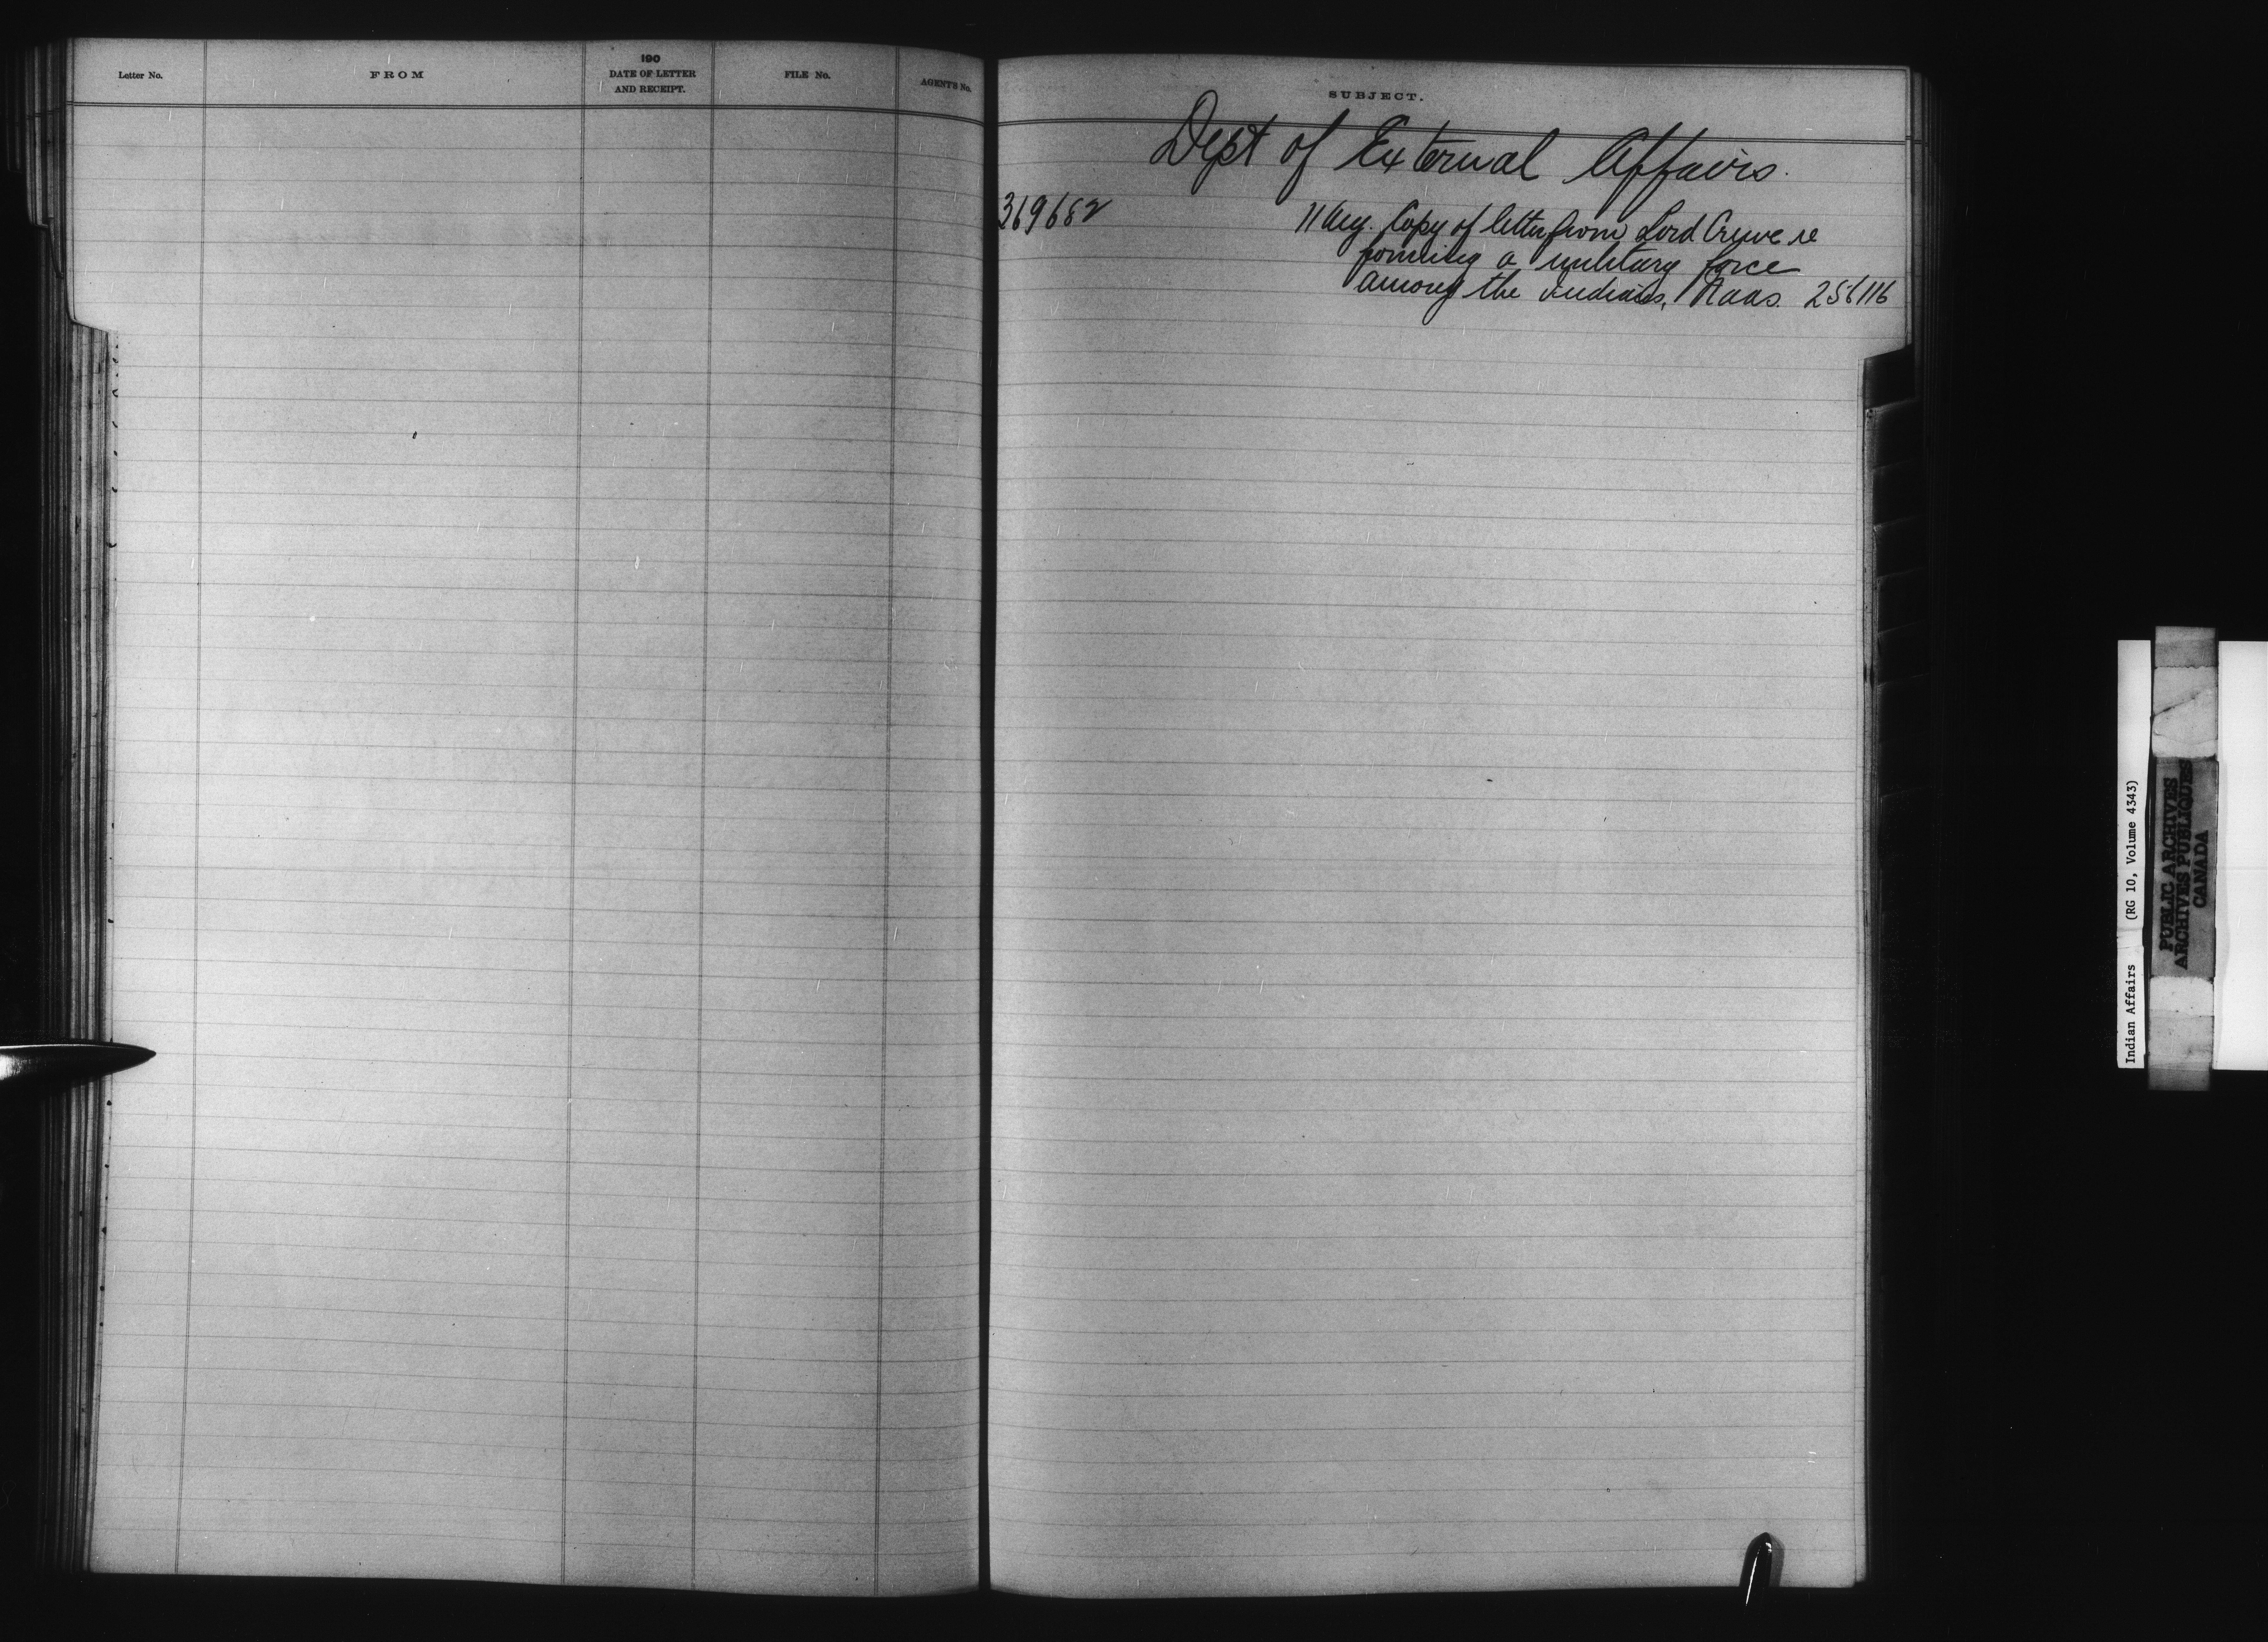 Letter No.
FROM
190
DATE OF LETTER
AND RECEIPT.
FILE No.
AGENT'S No.
SUBJECT.
Dept of External Affairs.
369682 11 Aug. Copy of letter from Lord Crewe re
forming a military force
among the Indians, 256116
Indian Affairs (RG 10, Volume 4343)
PUBLIC ARCHIVES
ARCHIVES PUBLIQUES
CANADA